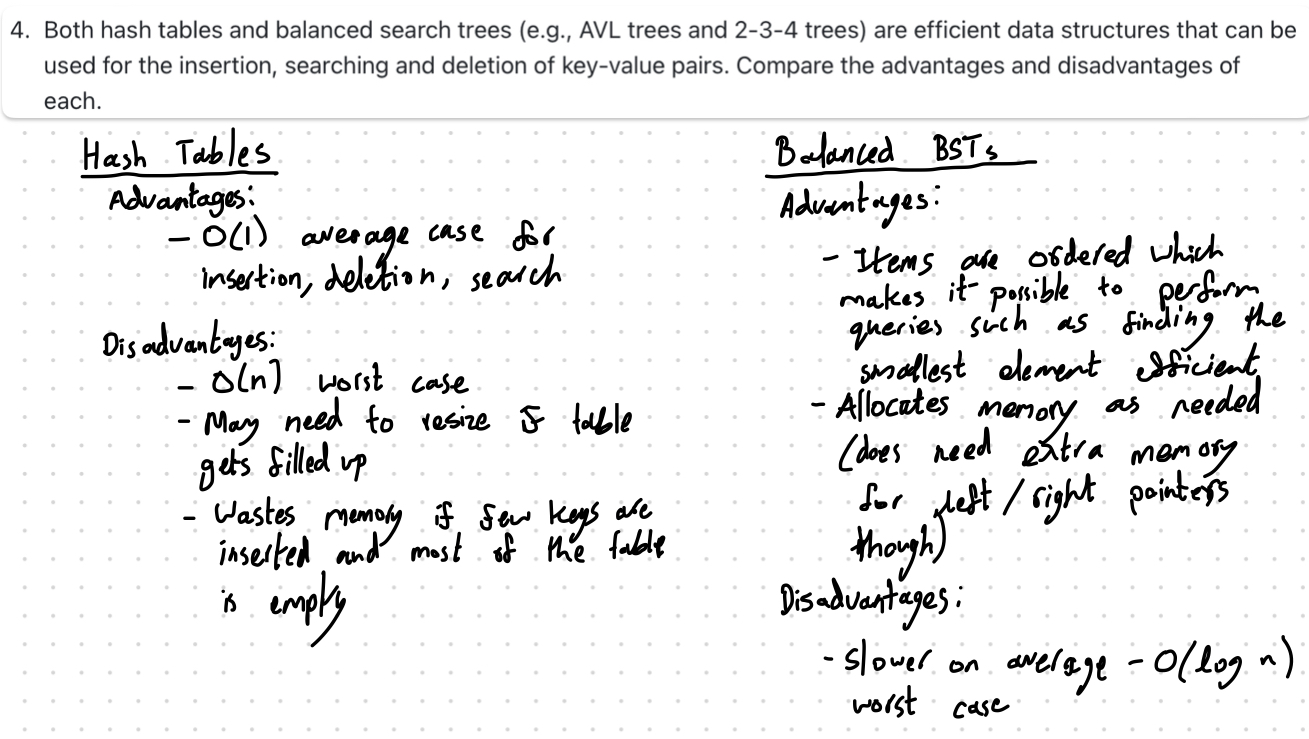 4. Both hash tables and balanced search trees (e.g., AVL trees and 2-3-4 trees) are efficient data structures that can be
used for the insertion, searching and deletion of key-value pairs. Compare the advantages and disadvantages of
each.
Hash Tables
Advantages:
- O(1) average case for
insertion, deletion, search
Disadvantages:
- O(n) worst case
- May need to resize if table
gets filled up
- Wastes memory if few keys are
inserted and most of the table
is empty
Balanced BSTs
Advantages:
- Items are ordered which
makes it possible to perform
queries such as finding the
smallest element efficient
- Allocates memory as needed
(does need extra memory
for left/right pointers
though)
Disadvantages:
- Slower on average - O(log n)
worst case